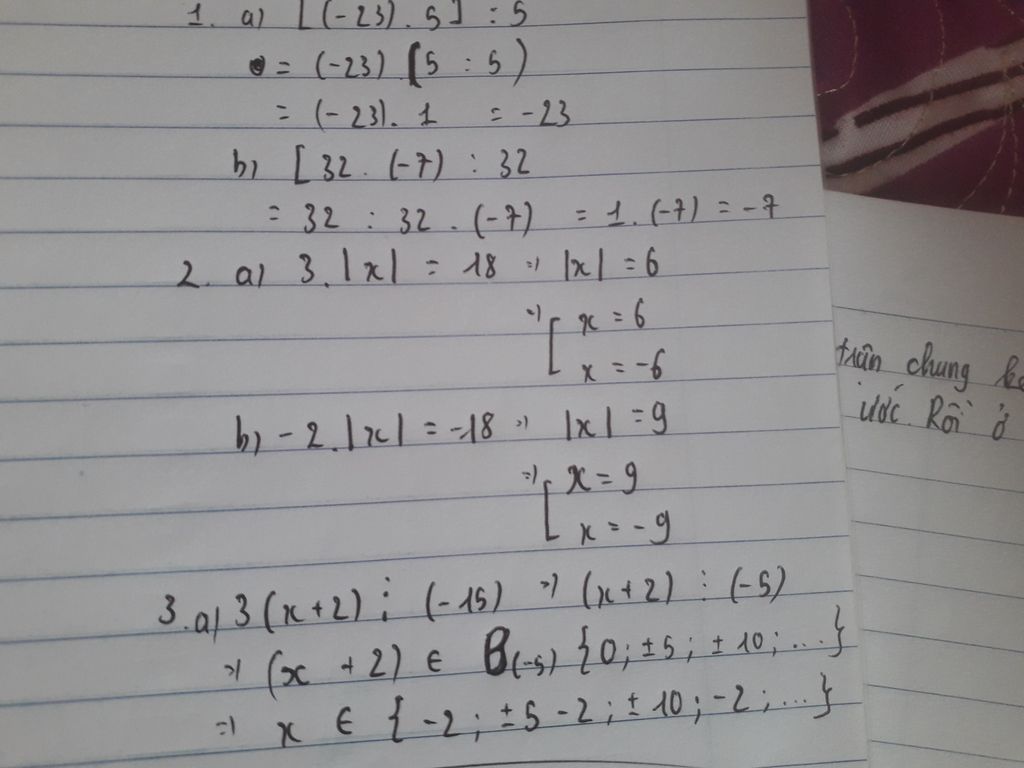 1. a) [(-23) . 5] : 5
= (-23) (5 : 5)
= (-23). 1 = -23
b) [32 . (-7) : 32
= 32 : 32 . (-7) = 1 . (-7) = -7
2. a) 3. |x| = 18 => |x| = 6
=> [ x = 6
x = -6
b) -2. |x| = -18 => |x| = 9
=> [ x = 9
x = -9
3. a) 3 (x+2) ⋮ (-15) => (x+2) ⋮ (-5)
=> (x + 2) ∈ B(-5) {0; ±5; ±10; ...}
=> x ∈ { -2; ±5 -2; ±10; -2; ...}
trân chung
ước. Rồi ở